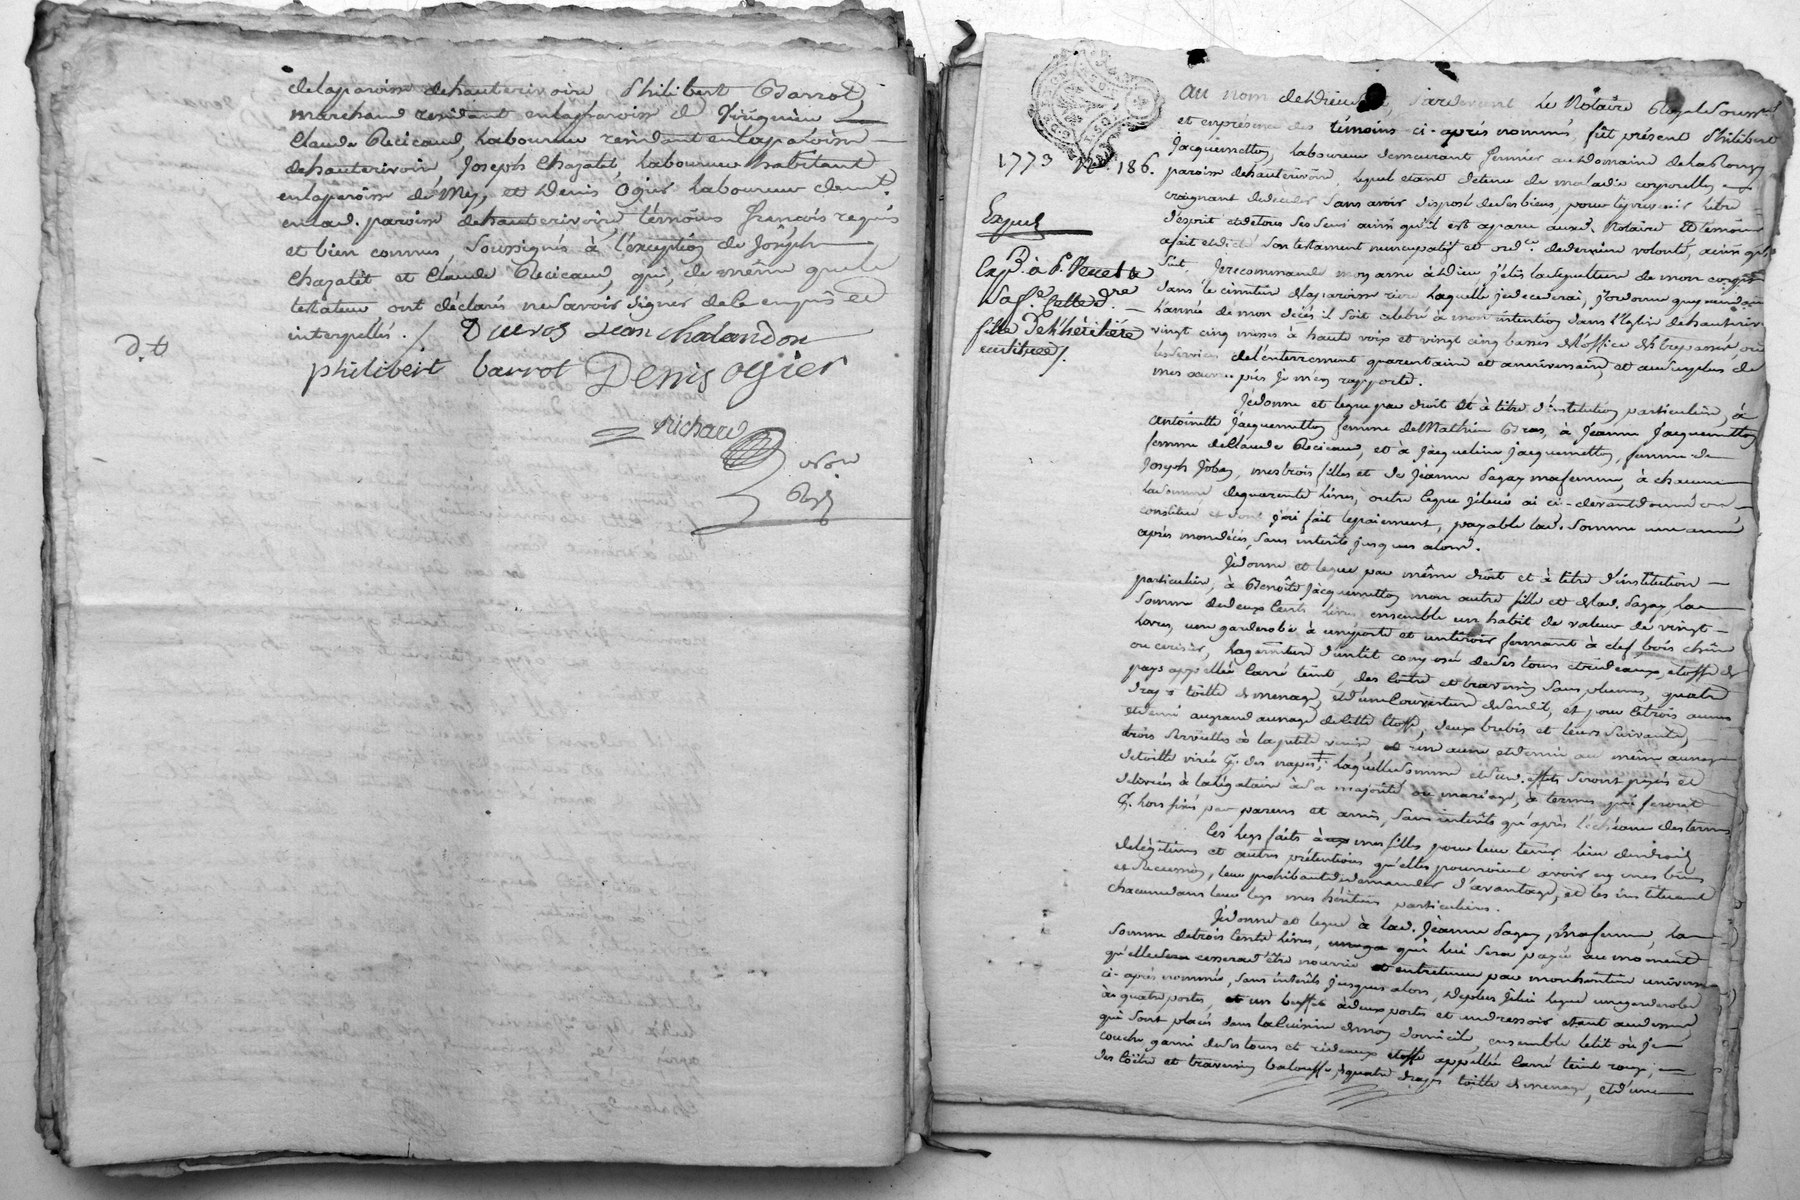 delaparoisse dehauterivoire Philibert Barrot,
marchand residant enlaparoisse de Virignieu
Claude Recicaud, laboureur residant enlaparoisse
dehauterivoire, Joseph Chazalet, laboureur habitant
enlaparoisse de Meÿs, et Denis Ogier laboureur demt.
enlad. paroisse dehauterivoire, témoins françois requis
et bien connus, soussignés à l'exception de Joseph
Chazalet et Claude Recicaud, qui, de même que le
testateur ont déclarés ne savoir signer de ce enquis et
interpellés. /. Duvos Jean Chalandon
D.t
philibert barrot Denis ogier
Richard
Nore
Roÿ
1773 No. 186.
Expué
Exp. à P.
Sa fe. cette
fille de l'héritière
instituée /.
Au nom de Dieu, pardevant le Notaire Royal soussné.
et en présence des témoins ci-après nommés, fût présent Philibert
Jacquemetton, laboureur demeurant fermier au Domaine de la
paroisse dehauterivoire, lequel etant détenu de maladie corporelle
craignant de décéder sans avoir disposé de ses biens, pour y prévenir libre
d'esprit et de tous ses sens ainsi qu'il est aparu auxd. Notaire et témoins
a fait et dicté son testament nuncupatif et ordce. de dernière volonté, ainsi qu'il
suit. Je recommande mon ame à Dieu, j'élis la sepulture de mon corps
dans le cimetière de la paroisse rière laquelle je décéderai, j'ordonne que pendant
l'année de mon décès il soit célébré à mon intention dans l'église dehauterivoire
vingt cinq messes à haute voix et vingt cinq basses de l'office des trépassés, outre
les services de l'enterrement quarantaine et anniversaire, et au surplus de
mes œuvres pies je m'en rapporte.
Je donne et legue par droit et à titre d'institution particulière, à
Antoinette Jacquemetton femme de Mathieu Bras, à Jeanne Jacquemetton
femme de Claude Recicaud, et à Jacqueline Jacquemetton, femme de
Joseph Jobey, mes trois filles et de Jeanne Pagay ma femme, à chacune
la somme de quarante livres, outre ce que je leur ai ci-devant donné ou
constitué et dont j'ai fait le paiement, payable lad. somme une année
après mon décès, sans intérêts jusques alors.
Je donne et legue par même droit et à titre d'institution
particulière, à Benoîte Jacquemetton mon autre fille et de lad. Pagay, la
somme de deux cents livres ensemble un habit de valeur de vingt
livres, une garderobe à une porte et un tiroir fermant à clef, bois chêne
ou cerisier, la garniture d'un lit composé de ses tours et rideaux, étoffe de
pays appellée Carré teint, des Coître et traversin sans plumes, quatre
draps toille de menage, et d'une Couverture de sandit, et pour ce trois aunes
et demi au grand aunage de cette étoffe, deux brebis et leurs suivants,
trois serviettes à la petite venise, et un aune et demie au même aunage
de toille virée p. des napes, laquelle somme et sud. effets seront payés et
délivrés à la légataire à sa majorité ou mariage, à termes qui seront
p. lors fixés par parens et amis, sans intérêts qu'après l'échéance des termes
Ces legs faits à mes filles pour leur tenir lieu de droits
de légitimes et autres prétentions qu'elles pourroient avoir en mes biens
et succession, leur prohibant de demander d'avantage, et les instituant
chacune dans leur legs mes héritières particulières.
Je donne et legue à lad. Jeanne Pagay, ma femme, la
somme de trois cents livres, qui lui sera payée au moment
qu'elle cessera d'être nourrie et entretenue par mon héritière universelle
ci-après nommée, sans intérêts jusques alors, De plus je lui legue une garderobe
à quatre portes, et un buffet à deux portes et un dressoir etant au dessus
qui sont placés dans la cuisine de mon domicile, ensemble le lit où je
couche garni de ses tours et rideaux étoffe appellée Carré teint rouge,
des Coître et traversin balouffe, quatre draps toille de menage, et d'une